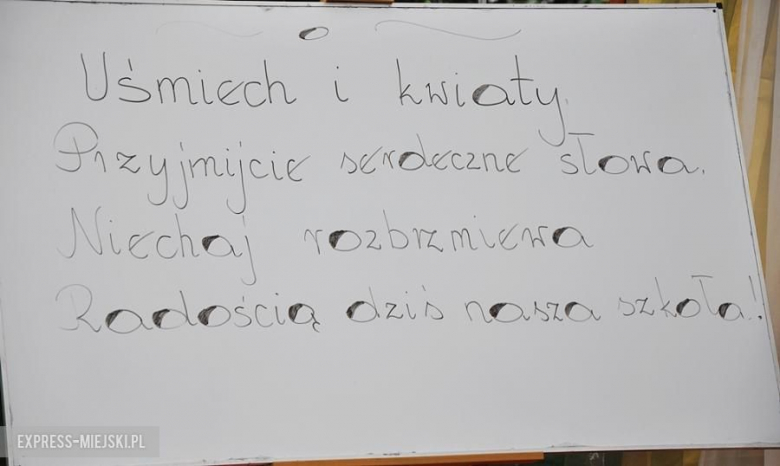 Uśmiech i kwiaty.
Przyjmijcie serdeczne słowa.
Niechaj rozbrzmiewa
Radością dziś nasza szkoła!
EXPRESS-MIEJSKI.PL